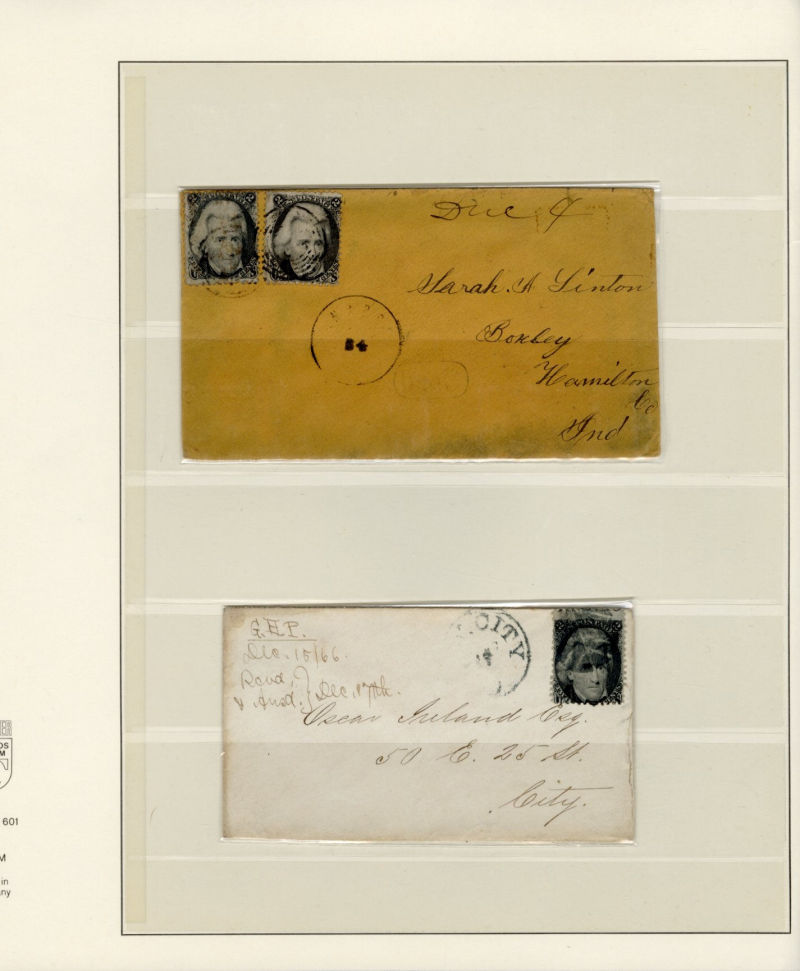 Due
Sarah. A Linton
Boxley
Hamilton
Co
Ind
MAR
24
G.E.P.
Dec. 15/66.
Recd.
& Ansd. } Dec. 17th.
CITY
Oscar Ireland Esq.
50 E. 25 St.
City.
601
M
in
any